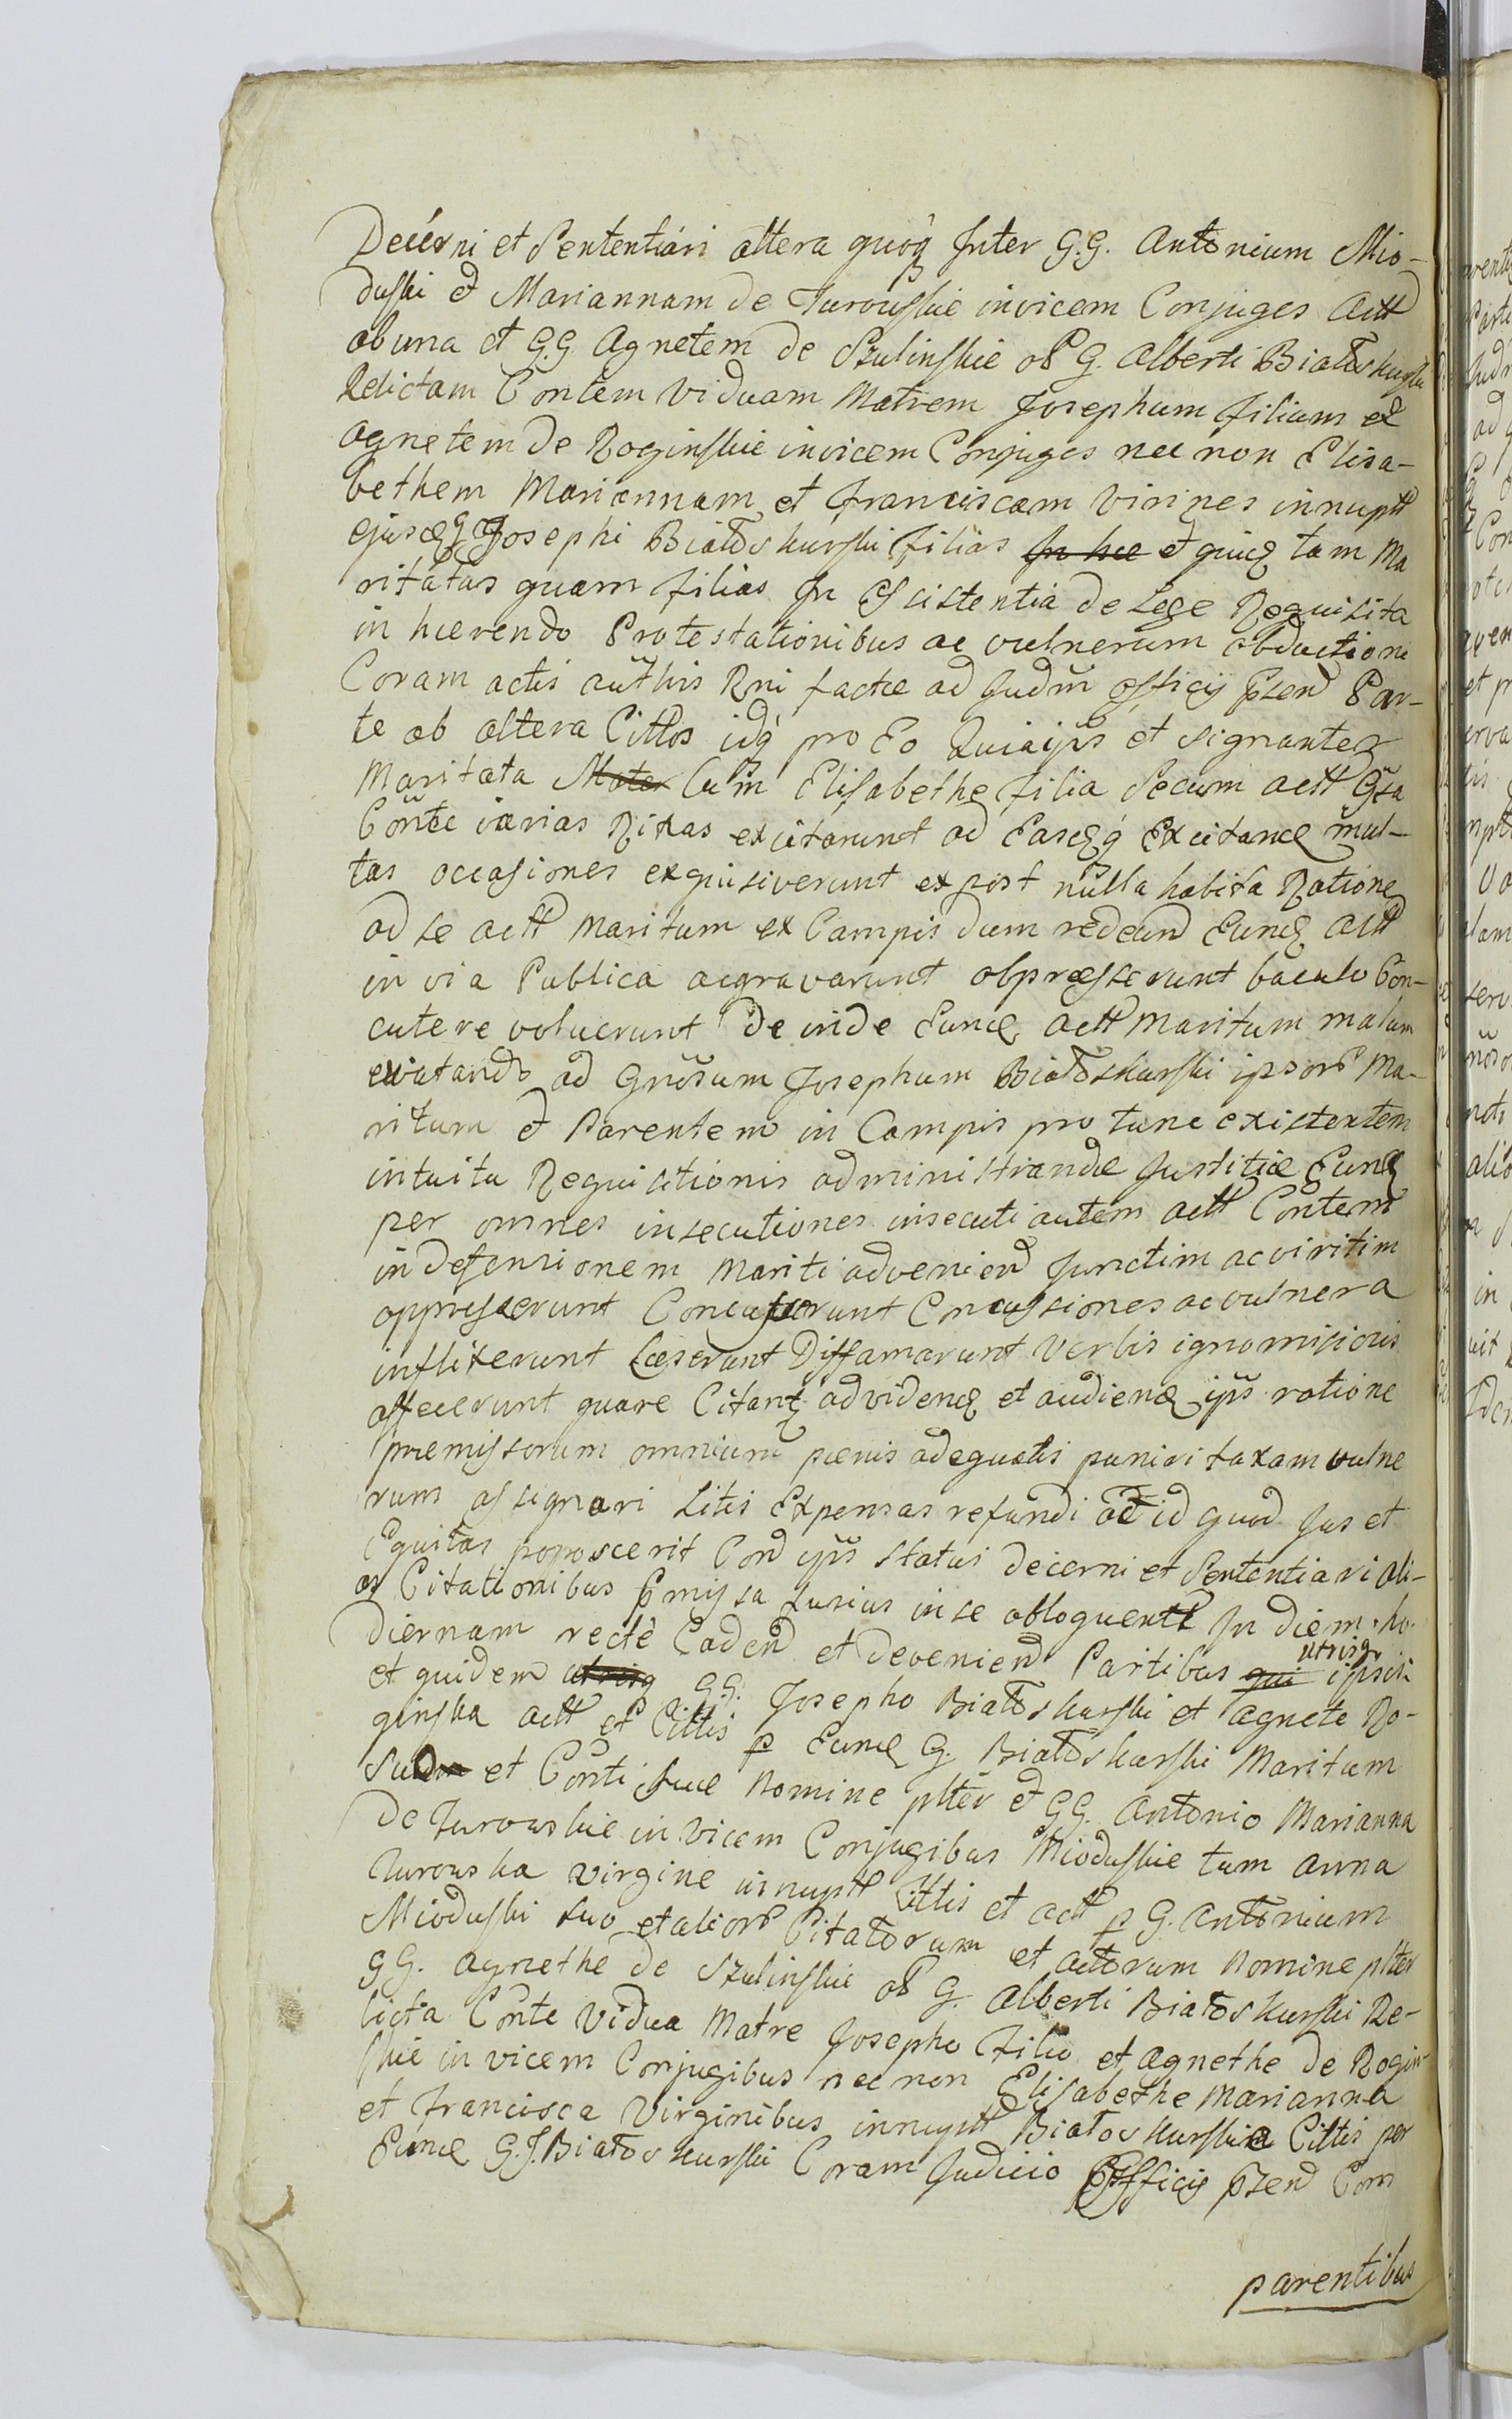 Decerni et Sententiari altera quoq Inter G.G. Antonium Mio-
duski et Mariannam de Turowskie invicem Conjuges Actt
ab una et G.G. Agnetem de Szulinskie olb G. Alberti Białoskurski
Relictam Contem Viduam Matrem Josephum filium et
Agnetem de Roginskie invicem Conjuges nec non Elisa-
bethem Mariannam et Franciscam Virines innuptt
ejusdq G Josephi Białoskurski filias In hec et quidq tam Ma
ritatas quam filias In Assistentia de Lege Requisita
in hærendo Protestationibus ac vulnerum obductioni
Coram actis authis Rni factæ ad Judm Officij pzend Par-
te ab altera Cittos idq pro Eo Quia ips et signanter
Maritata Mater Cum Elisabethe filia Secum actt Gsa
Conte varias Rixas excitarunt ad Easdq Excitand mul-
tas occasiones exquisiverunt ex post nulla habita Ratione
ad se actt Maritum ex Campis dum redeund Eund Actt
in via Publica aggravarunt obpresserunt baculo Con-
cutere voluerunt de inde Eund Actt Maritum malum
evitando ad Gnosum Josephum Białoskurski ipsorb Ma-
ritum et Parentem in Campis pro tunc existentem
intuitu Requisitionis administrandæ Justitiæ Eund
per omnes insecutiones insecuti autem actt Contem
in defensionem Mariti adveniend Junctim ac viritim
oppresserunt Concusserunt Concussiones ac vulnera
inflixerunt Læserunt Diffamarunt Verbis ignominiosis
affecerunt quare Citantq ad vidend et audiend ips ratione
præmissorum omnium pænis adequatis puniri taxam vulne
rum assignari Litis Expensas refundi ac id quod Jus et
Equitas poposcerit Cond ips statui decerni et Sententiari ali-
as Citationibus pmissa Lusius in se obloquentt In Diem ho-
diernam recte Cadend et deveniend Partibus qui utrisq ipsis
et quidem utrisq GG. Josepho Białoskurski et Agnete Ro-
ginska Actt et Cittis p Eund G. Białoskurski Maritum
Suo et Conti suæ Nomine plter et GG. Antonio Marianna
De Turowskie in vicem Conjugibus Mioduskie tum Anna
Turowska Virgine innuptt Cittis et actt p G. Antonium
Mioduski suo et aliorb Citatorum et Actorum Nomine plter
GG. Agnethe de Szulinskie olb G. Alberti Białoskurski Re-
licta Conte Vidua Matre Josepho filio et Agnethe de Rogin-
skie in vicem Conjugibus nec non Elisabethe Marianna
et Francisca Virginibus innuptt Białoskurskie Cittis per
Eund G. J. Białoskurski Coram Judicio Officij pzend Com
parentibus